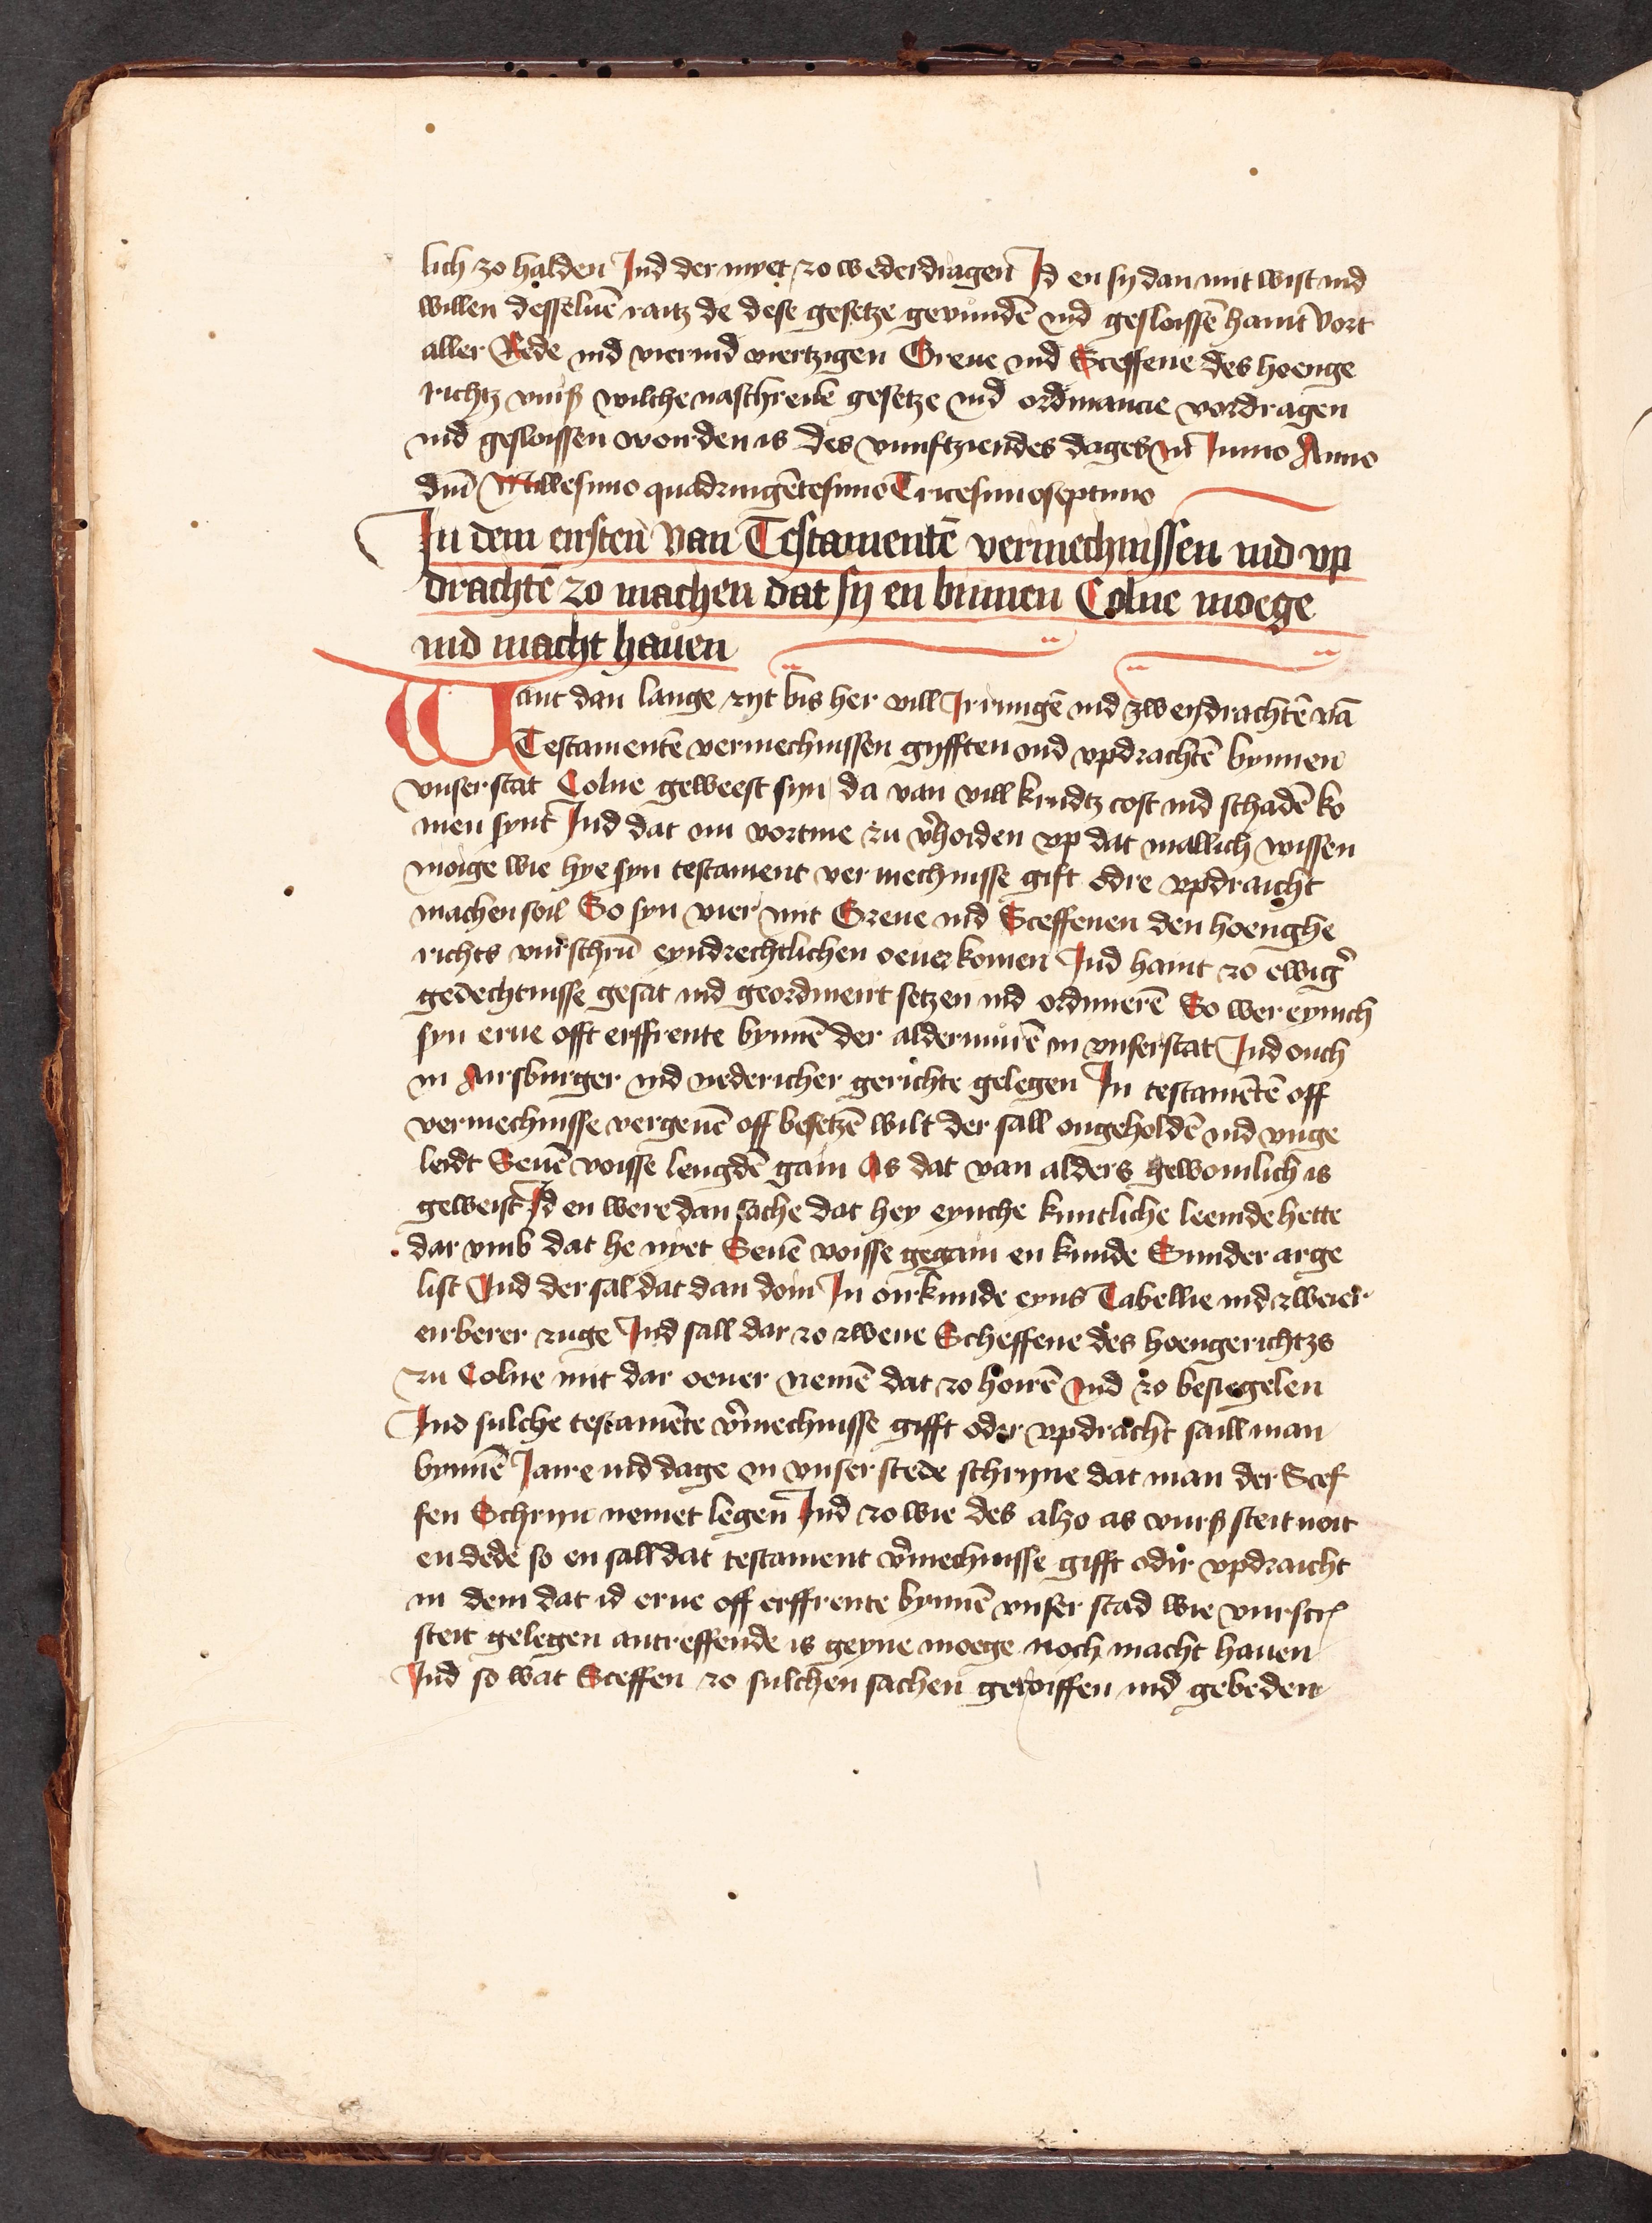 lich zo halden Ind der nyet zo wederdragen Id en sy dan mit wist ind
willen desseluē raitz de dese gesetze gevundē ind gesloissē haint Vort
aller Rede ind vierind viertzigen Greue ind Sceffene des hoenge
richtz vurß wilche naschreuē gesetze ind ordinancie vordragen
ind gesloissen worden is des vunftziendes dages in Junio Anno
dni Millesimo quadringētesimo Tricesimoseptimo
In dem eirsten Van Testamentē vermechnissen ind vp
drachtē zo machen dat sy en binnen Colne moege
ind macht hauen
Want dan lange zyt bis her vill Irrungē ind zweydrachtē vā
Testamentē vermechnissen gyfften ind vpdrachtē bynnen
vnser stat Colne geweest syn da van vill krudtz cost ind schadē ko
men synt Ind dat om vortme zu v'hoiden vp dat mallich wissen
moige wie hye syn testament vermechnisse gift odre vpdraicht
machen soil So syn wier mit Greue ind Sceffenen den hoenghe
richts vurschrū eyndrechtlichen oeuerkomen Ind haint zo ewig'
gedechtnisse gesat ind geordineirt setzen ind ordinnerē So wer eynich
syn erue offt erffrente bynnē der aldermurē in vnserstat Ind ouch
in Airsburger ind nedericher gerichte gelegen In testamētē off
vermechnisse vergeuē off besetzē wilt der sall ongeholdē ind vnge
leidt Seuē voisse lengdē gain As dat van alders gewoinlich is
geweist Id en were dan sache dat hey eynche kuntliche leemde hette
dar vmb dat he nyet Seuē voisse gegain en kunde Sunder arge
list Ind der sal dat dan doin In oirkunde eyns Tabellie ind zweier
eirberer zuge Ind sall dar zo zwene Scheffene des hoengerichtzs
zu Colne mit dar oeuer nemē dat zo hoirē ind zo besiegelen
Ind sulche testamēte v'mechnisse gifft oder vpdracht saill man
bynnē Jaire ind dage in vnser stede schryne dat man der Scef
fen Schryn nemet legen Ind zo wie des alzo as vurß steit noit
en dede so en sall dat testament v'mechnisse gifft odir vpdraicht
in dem dat id erue off erffrente bynnē vnser stad wie vurscr
steit gelegen antreffende is geyne moege noch macht hauen
Ind so wat Sceffen zo sulchen sachen geroiffen ind gebeden